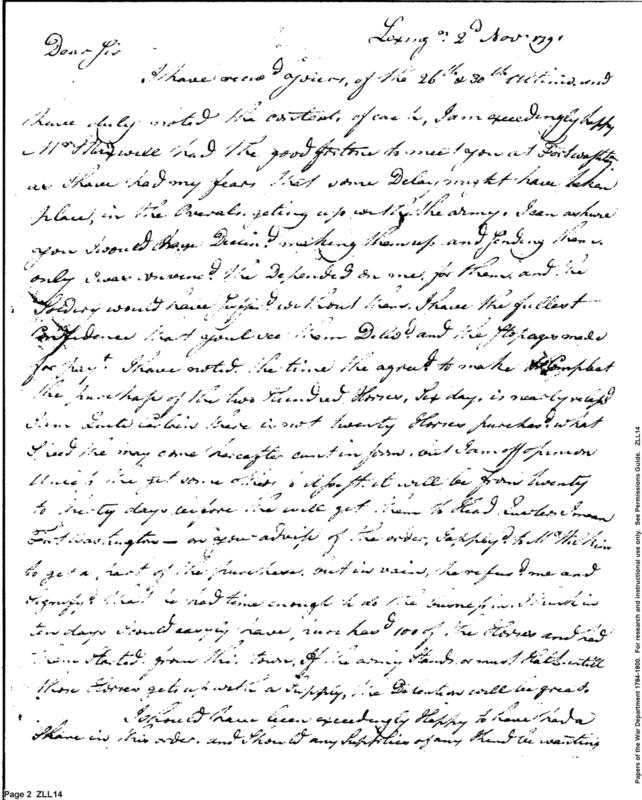 Lexingn. 2d Nov. 1791
Dear Sir
I have recvd yours, of the 26th & 30th Ultimo, and
have duly noted the contents of each, I am exceedingly happy
Mr had the good fortune to meet you at Fort
as I have had my fears that some Delay might have taken
place, in the Overals geting up with the army. I can ashure
you I would have Declind making them up and sending them
only I was convincd the Depended on me, for them, and the
Soldiery would have without them. I have the fullest
Confidence that youl see them Delivd and the Stopages made
for payt. I have noted, the time the agreed to make Compleat
the purchase of the two Hundred Horses, Six days is nearly
I am Quite certain there is not twenty Horses purchasd, what
Speed the may come hereafter cant inform, but I am off opinion
Unless the get some others to assist it will be from twenty
to thirty days before the will get them to Head Quarters I mean
Fort Washington — on your advise of the order, I applyd to Mr
to get a part of the purchase, but in vain, he refusd me and
signifyd that he had time enough to do the business in. I think in
ten days I could easily have, purchasd 100 of the Horses and had
them Started from this town, If the army Stands or must Halt untill
those Horses gets up with a Supply, the Detention will be great.
I should have been exceedingly Happy to have had a
Share in this order, and Should any Supplies of any Kind be wanting
Page 2 ZLL14
Papers of the War Department 1784-1800. For research and instructional use only. See Permissions Guide. ZLL14